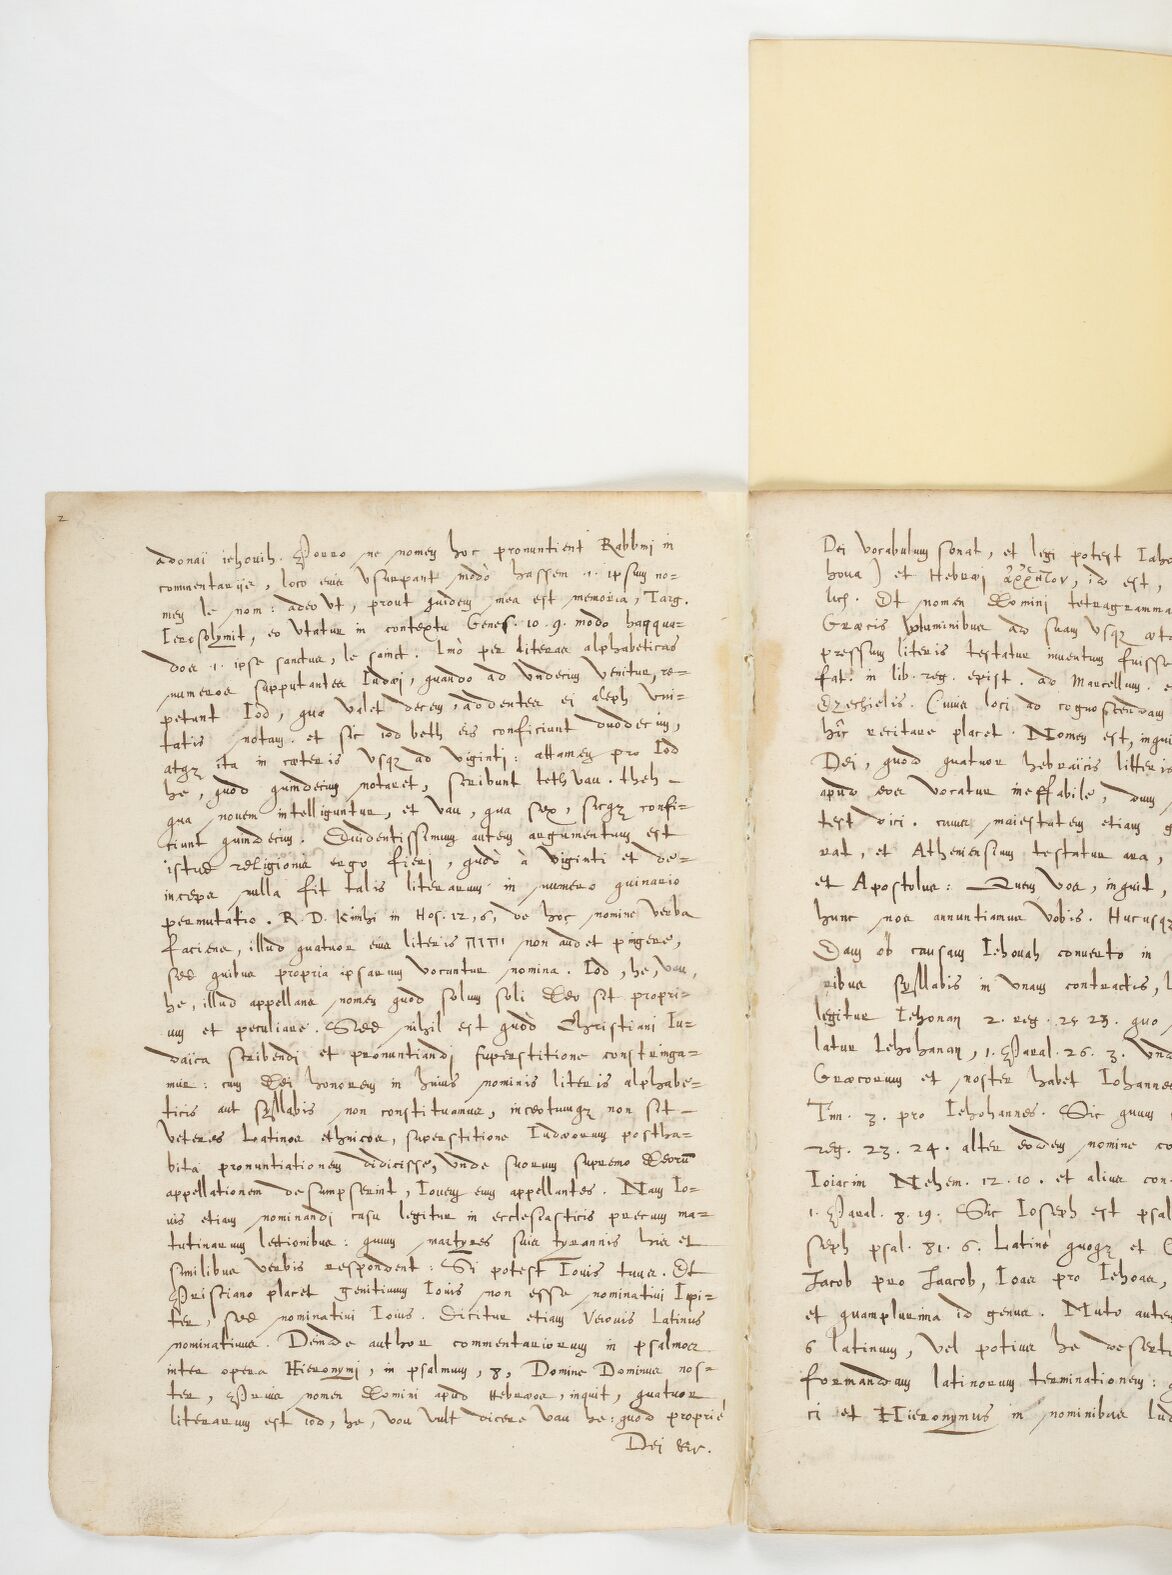 2
adonaï iehouih. Porro ne nomen hoc pronuntient Rabbini in
commentarijs, loco eius vsurpant modò hassem .i. ipsum no=
men le nom: adeo vt, prout quidem mea est memoria, Targ.
Ierosolymit, eo vtatur in contextu Genes. 10. 9. modo haqqua=
dos .i. ipse sanctus, le sainct. Imò per literas alphabeticas
numeros supputantes Iudæi, quando ad vndecim venitur, re=
petunt Iod, quæ valet decem, addentes ei aleph vni=
tatis notam. et sic iod beth eis conficiunt duodecim,
atqz ita in cæteris vsqz ad viginti: attamen pro Iod
he, quod quindecim notaret, scribunt teth vau. theth
qua nouem intelliguntur, et vau, qua sex, sicqz confi=
ciunt quindecim. Euidentissimum autem argumentum est
istud religionis ergo fieri, quòd à viginti et de=
inceps nulla fit talis literarum in numero quinario
permutatio. R. D. Kimhi in Hos. 12, 6, de hoc nomine verba
faciens, illud quatuor eius literis יהוה non audet pingere,
sed quibus propria ipsarum vocantur nomina. Iod, he, vau,
he, illud appellans nomen quod solum soli Deo sit propri=
um et peculiare. Sed nihil est quòd Christiani Iu=
daïca scribendi et pronuntiandi superstitione constringa=
mur: cum Dei honorem in huius nominis literis alphabe=
ticis aut syllabis non constituamus, inceptumqz non sit
veteres Latinos ethnicos, superstitione Iudæorum postha=
bita pronuntiationem didicisse, vnde suorum supremo Deorū
appellationem desumpserint, Iouem eum appellantes. Nam Io=
uis etiam nominandi casu legitur in ecclesiasticis precum ma=
tutinarum lectionibus: quum martyres suis tyrannis his et
similibus verbis respondent: Si potest Iouis tuus. Et
Prisciano placet genitiuum Iouis non esse nominatiui Iupi=
ter, sed nominatiui Iouis. Dicitur etiam Veiouis Latinus
nominatiuus. Deinde author commentariorum in psalmos
inter opera Hieronymi, in psalmum, 8, Domine Dominus nos=
ter, Prius nomen Domini apud Hebræos, inquit, quatuor
literarum est iod, he, vau vult dicere vau he: quod propriè
Dei &c.
Dei vocabulum sonat, et legi potest Iaho
houa) et Hebræi ἄῤῥητον, id est,
lich. Et nomen Domini tetragramma
Græcis voluminibus ad suam vsqz æta
pressum literis testatur inuentum fuisse
fat. in lib. reg. epist. ad Marcellum. e
Ezechielis. Cuius loci ad cognoscendam
hîc recitare placet. Nomen est, inqui
Dei, quod quatuor hebraicis litteris
apud eos vocatur ineffabile, dum
test dici. cuius maiestatem etiam g
rat, et Atheniensium testatur ara,
et Apostolus: Quem vos, inquit,
hunc nos annuntiamus vobis. Hucusqz
Eam ob causam Iehouah conuerto in
ribus syllabis in vnam contractis, l
legitur Iehonan 2. reg. 25 23. quo
latur Iehohanan, 1. Paral. 26. 3. vnd
Græcorum et noster habet Iohannes
Tim. 3. pro Iehohannes. Sic quum
reg. 23. 24. alter eodem nomine co
Ioiacim Nehem. 12. 10. et alius con
1. Paral. 8. 19. Sic Ioseph est psal
seph psal. 81. 6. Latinè quoqz et G
Jacob pro Jaacob, Ioas pro Iehoas,
et quamplurima id genus. Muto autem
6 latinum, vel potius he deserta
formandam latinorum terminationem:
ci et Hieronymus in nominibus Iud